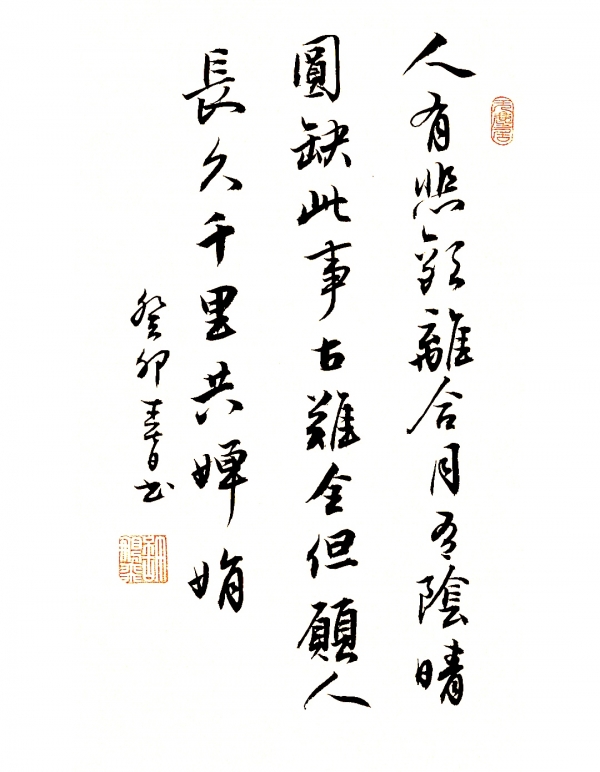 人有悲歡離合月有陰晴
圓缺此事古難全但願人
長久千里共嬋娟
癸卯春書